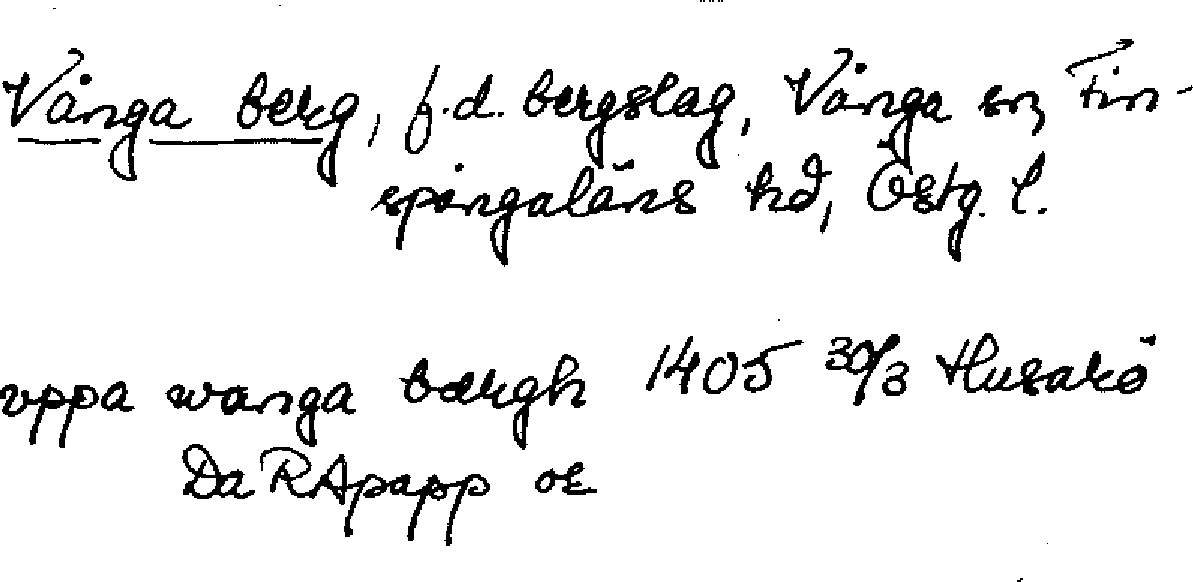 Vånga berg, f.d. bergslag, Vånga sn, Fin-
spångaläns hd, Östg. l.
vppa wanga bærgh 1405 30/3 Husarö
Da RApapp or